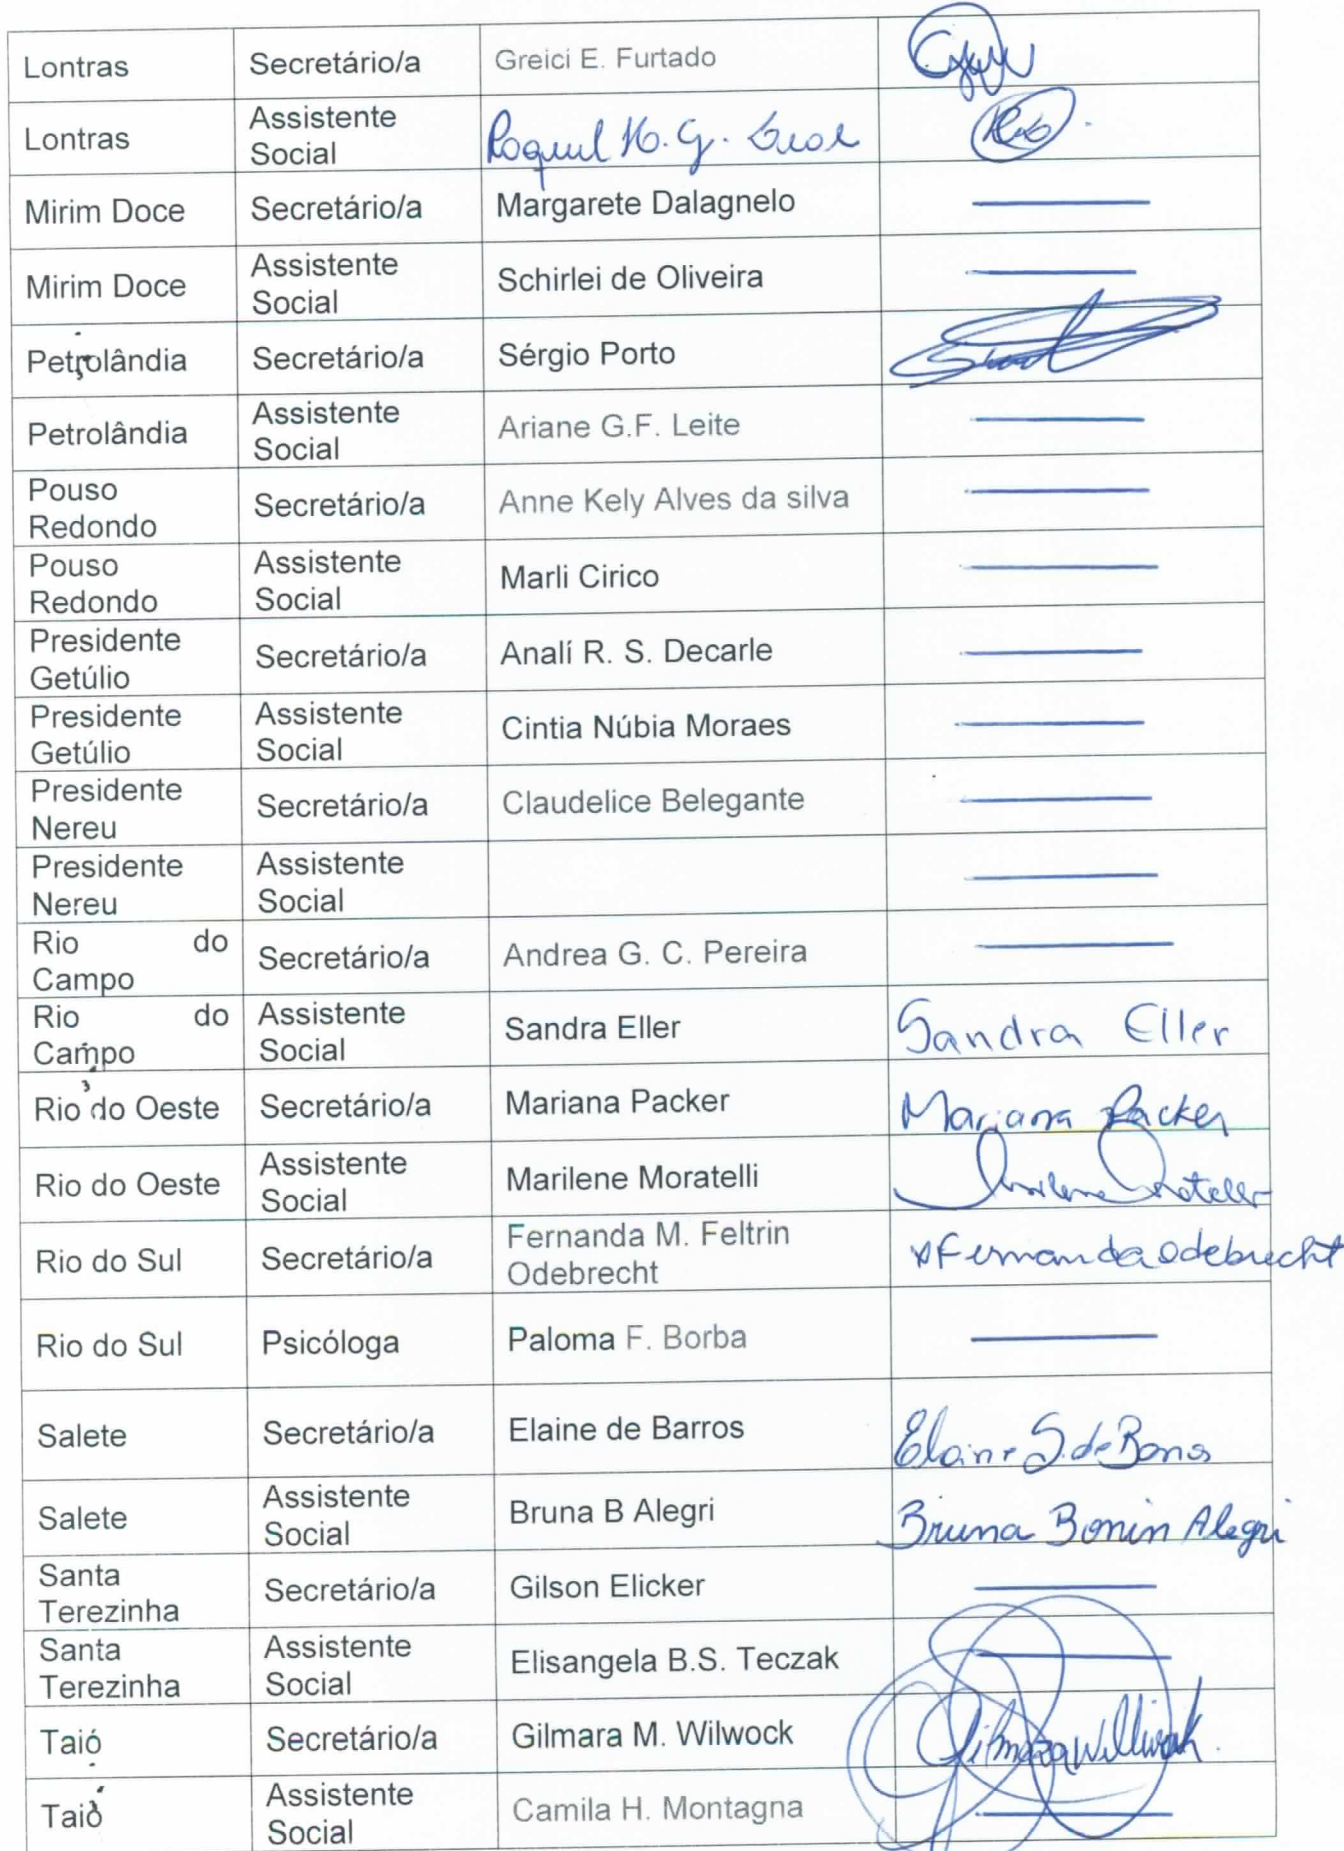 Lontras Secretário/a Greici E. Furtado
Lontras Assistente Social
Mirim Doce Secretário/a Margarete Dalagnelo
Mirim Doce Assistente Social Schirlei de Oliveira
Petrolândia Secretário/a Sérgio Porto
Petrolândia Assistente Social Ariane G.F. Leite
Pouso Redondo Secretário/a Anne Kely Alves da silva
Pouso Redondo Assistente Social Marli Cirico
Presidente Getúlio Secretário/a Analí R. S. Decarle
Presidente Getúlio Assistente Social Cintia Núbia Moraes
Presidente Nereu Secretário/a Claudelice Belegante
Presidente Nereu Assistente Social
Rio do Campo Secretário/a Andrea G. C. Pereira
Rio do Campo Assistente Social Sandra Eller Sandra Eller
Rio do Oeste Secretário/a Mariana Packer Mariana Packer
Rio do Oeste Assistente Social Marilene Moratelli Marilene Moratelli
Rio do Sul Secretário/a Fernanda M. Feltrin Odebrecht Fernanda Odebrecht
Rio do Sul Psicóloga Paloma F. Borba
Salete Secretário/a Elaine de Barros Elaine S. de Barros
Salete Assistente Social Bruna B Alegri Bruna Bonin Alegri
Santa Terezinha Secretário/a Gilson Elicker
Santa Terezinha Assistente Social Elisangela B.S. Teczak
Taió Secretário/a Gilmara M. Wilwock
Taiò Assistente Social Camila H. Montagna